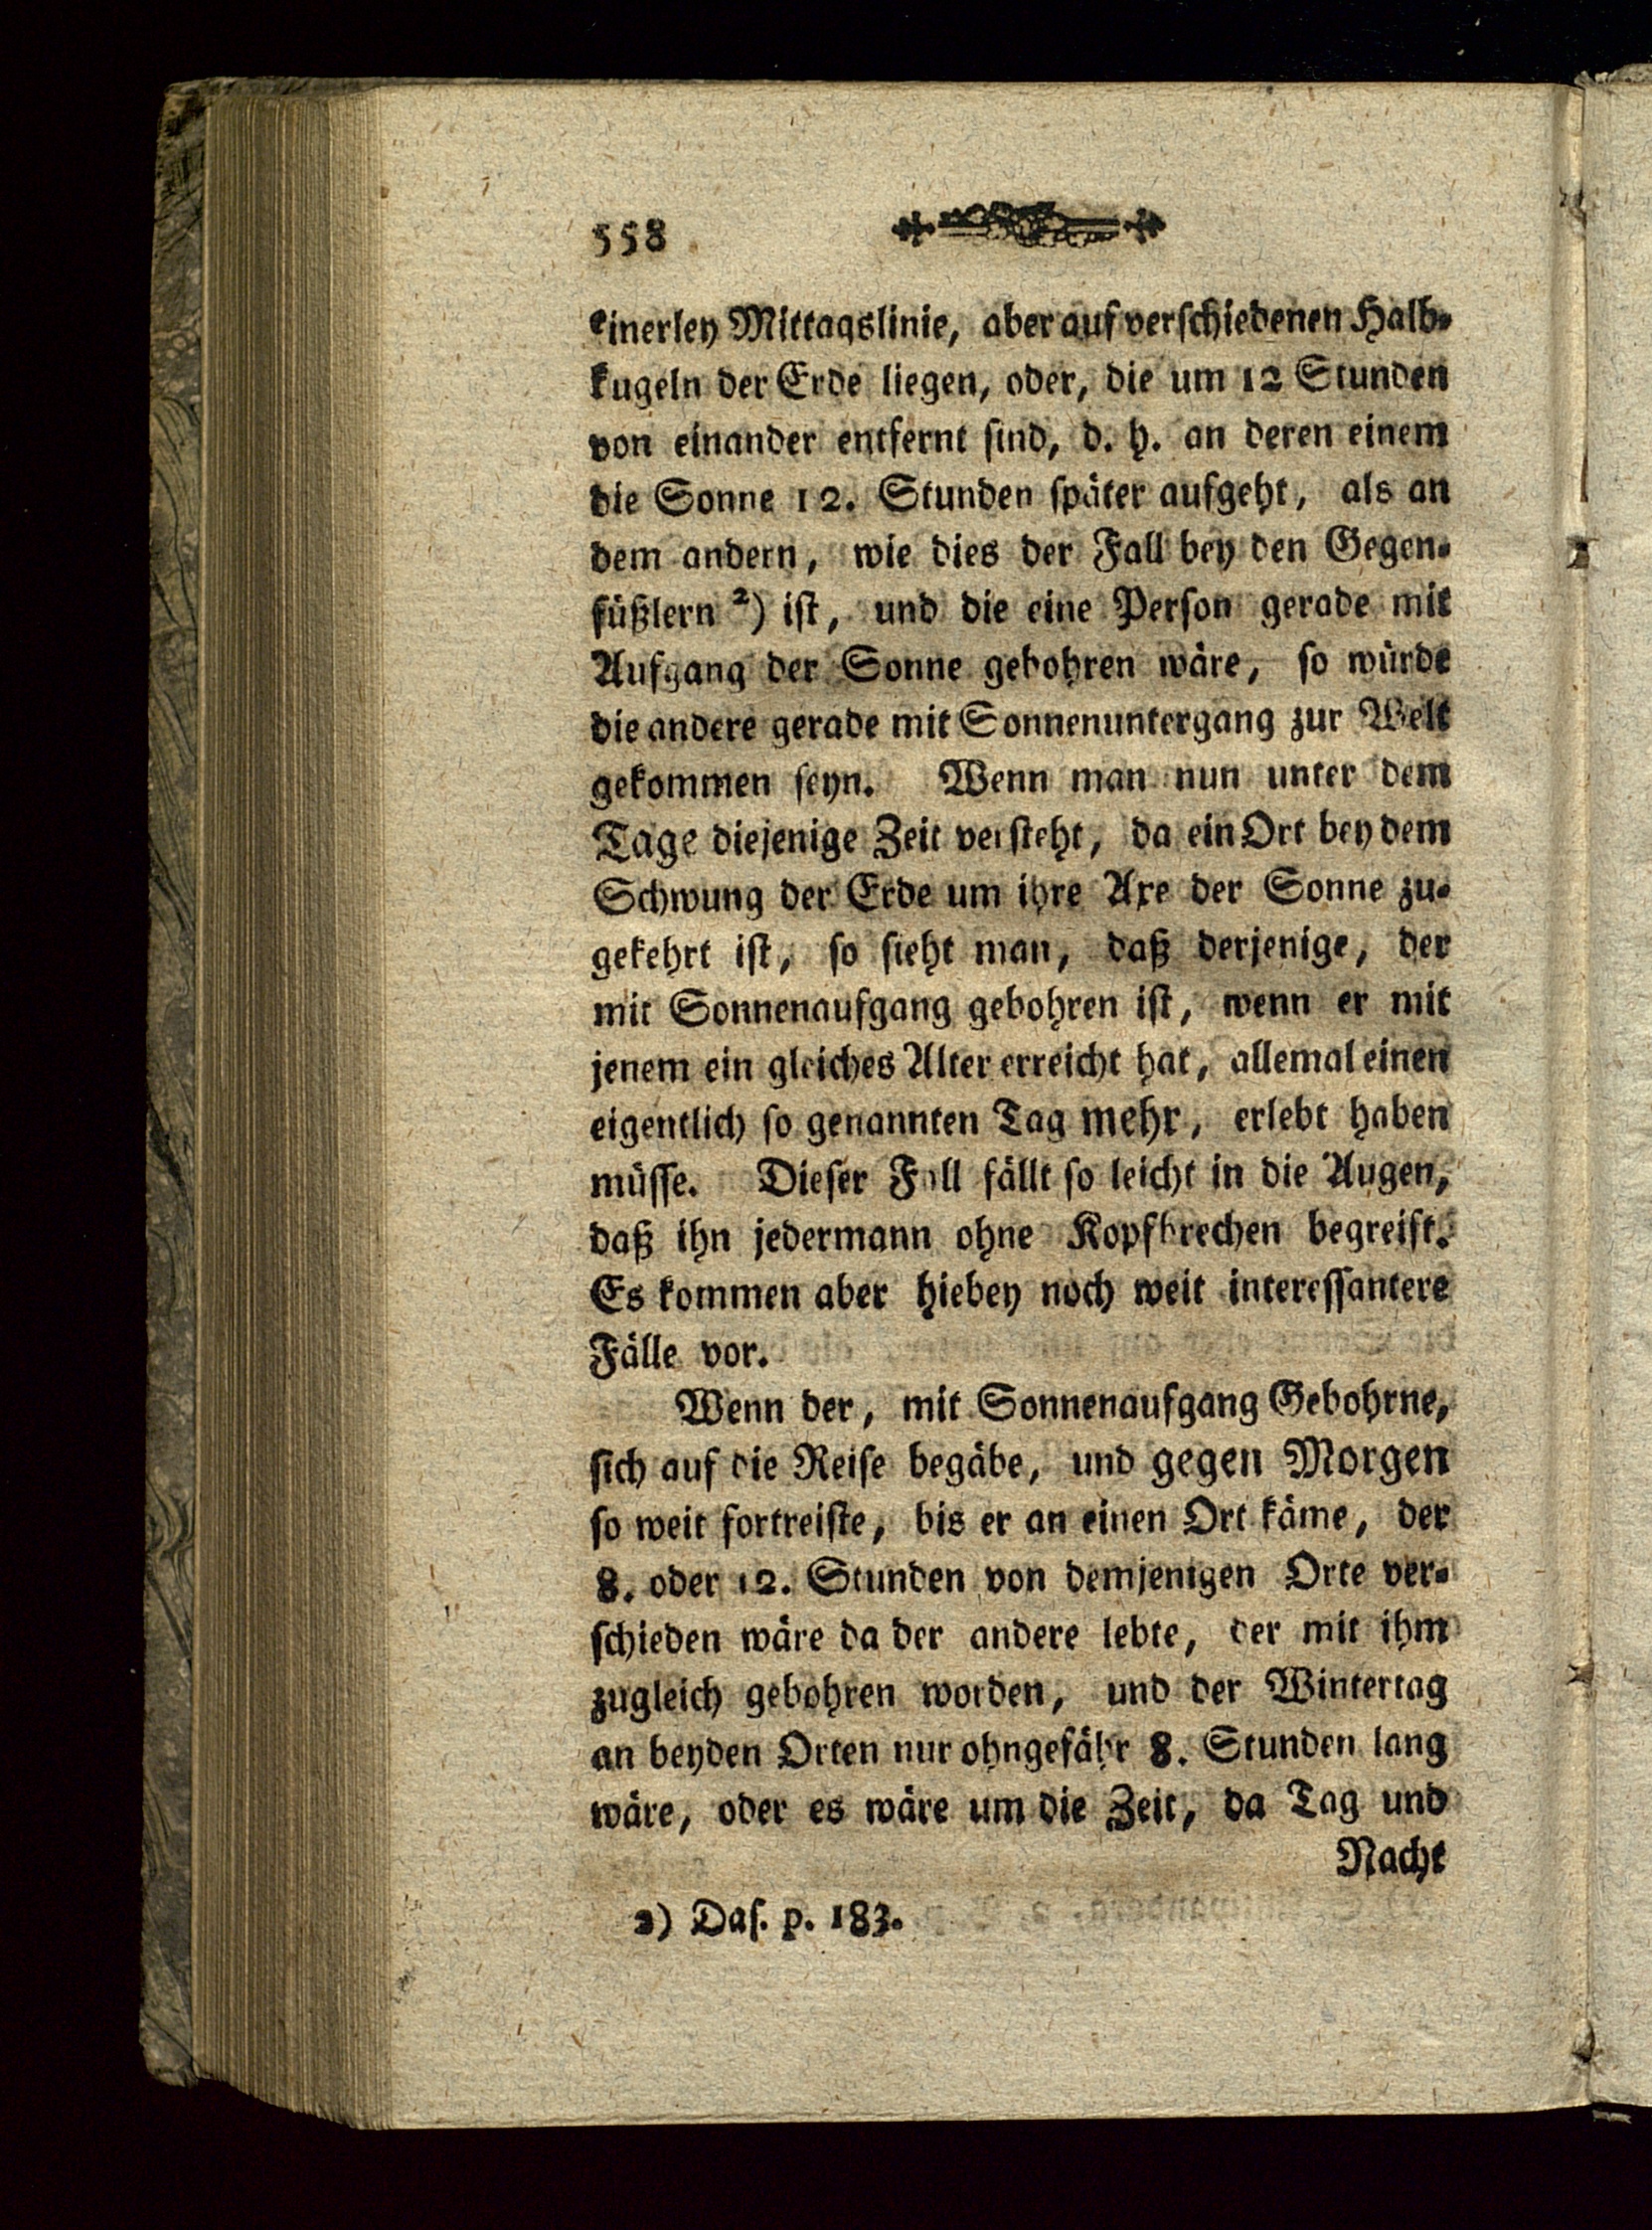 558
einerley Mittagslinie, aber auf verschiedenen Halb-
kugeln der Erde liegen, oder, die um 12 Stunden
von einander entfernt sind, d. h. an deren einem
die Sonne 12. Stunden später aufgeht, als an
dem andern, wie dies der Fall bey den Gegen-
füßlern ²) ist, und die eine Person gerade mit
Aufgang der Sonne gebohren wäre, so würde
die andere gerade mit Sonnenuntergang zur Welt
gekommen seyn. Wenn man nun unter dem
Tage diejenige Zeit versteht, da ein Ort bey dem
Schwung der Erde um ihre Axe der Sonne zu-
gekehrt ist, so sieht man, daß derjenige, der
mit Sonnenaufgang gebohren ist, wenn er mit
jenem ein gleiches Alter erreicht hat, allemal einen
eigentlich so genannten Tag mehr, erlebt haben
müsse. Dieser Fall fällt so leicht in die Augen,
daß ihn jedermann ohne Kopfbrechen begreift.
Es kommen aber hiebey noch weit interessantere
Fälle vor.
Wenn der, mit Sonnenaufgang Gebohrne,
sich auf die Reise begäbe, und gegen Morgen
so weit fortreiste, bis er an einen Ort käme, der
8. oder 12. Stunden von demjenigen Orte ver-
schieden wäre da der andere lebte, der mit ihm
zugleich gebohren worden, und der Wintertag
an beyden Orten nur ohngefähr 8. Stunden lang
wäre, oder es wäre um die Zeit, da Tag und
Nacht
2) Das. p. 183.